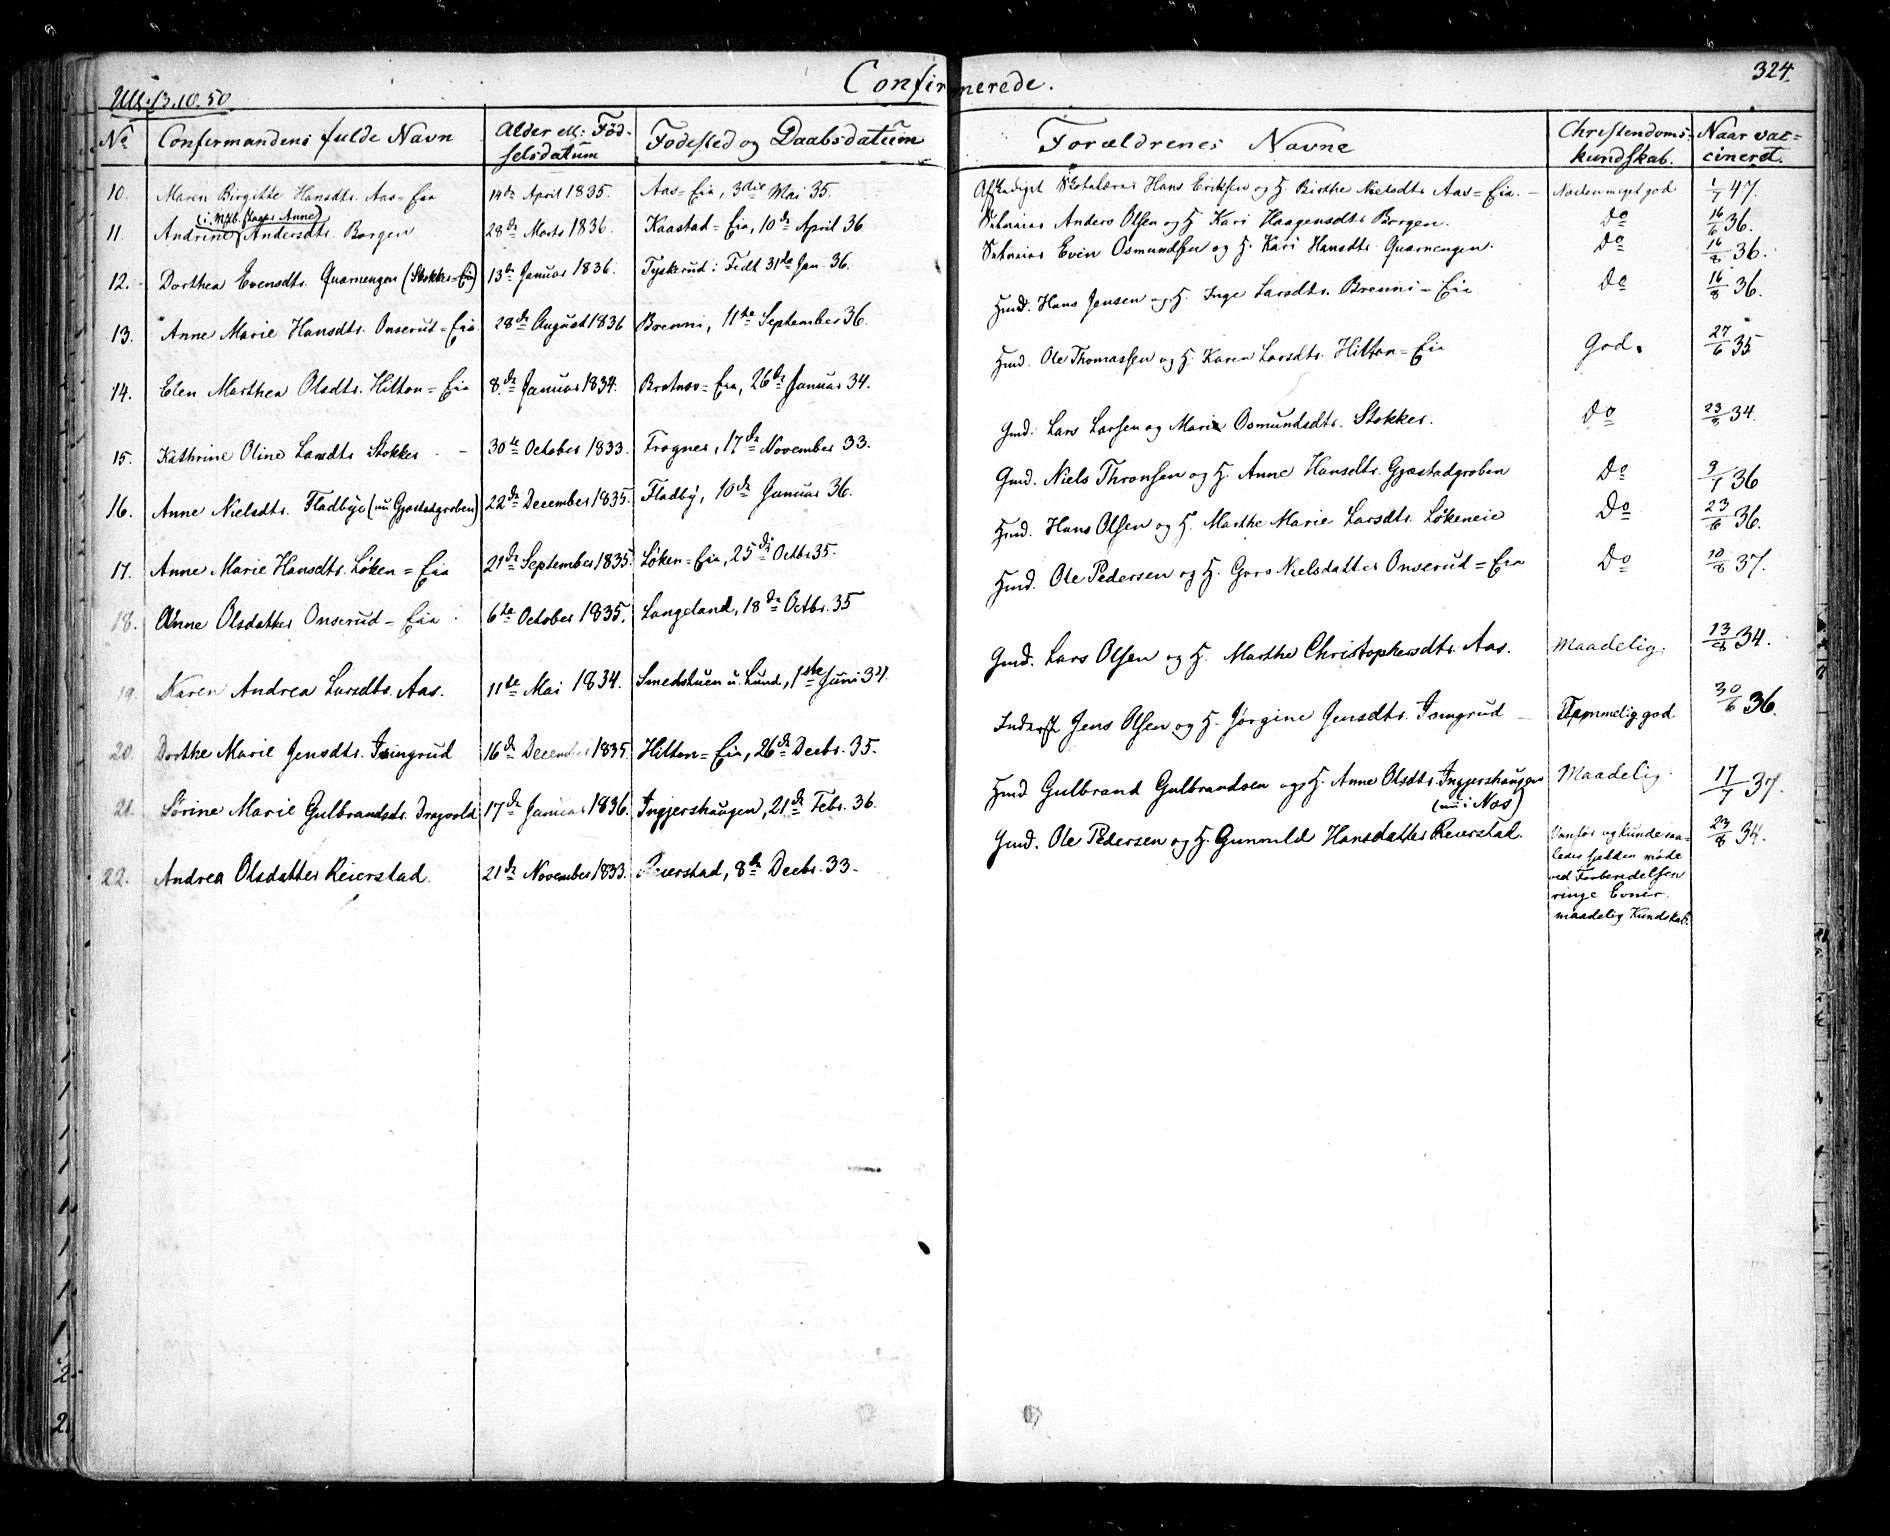 Confirmerede.
324
Ull. 13.10.50
No Confirmandens fulde Navn Alder ell: Fødselsdatum Fødested og Daabsdatum Forældrenes Navne Christendomskundskab. Naar vaccineret.
10. Maren Birgitte Hansdtr. Aas=Eia 14de April 1835. Aas=Eia, 3die Mai 35. Hans Eriksen og H. Birthe Nielsdtr Aas=Eie. Noden meget god 1/7 47.
11. Andrine (i Mstb. Anne) Andersdtr. Borgen 28de Marts 1836. Kaastad=Eia, 10de April 36 Anders Olsen og H. Kari Haagensdtr Borgen. Do 16/6 36.
12. Dorthea Evensdtr. Quernengen (Stokker=Eie) 13de Januar 1836. Tyskerud i Fedt 31te Jan. 36. Even Osmundsen og H. Kari Hansdtr. Quernengen. Do 16/8 36.
13. Anne Marie Hansdtr. Onserud=Eia 28de August 1836 Brenni, 11te September 36. Hmd. Hans Jensen og H. Inge Larsdtr. Brenni=Eia Do 16/8 36.
14. Elen Marthea Olsdtr. Hilton=Eia 8de Januar 1834. Bratnes=Eia, 26de Januar 34. Hmd. Ole Thomassen og H. Karen Larsdtr. Hilton=Eia God. 27/6 35
15. Kathrine Oline Larsdtr Stokker 30te October 1833. Frogner, 17de November 33. Gmd. Lars Larsen og Marie Osmundsdtr. Stokker. Do 23/8 34.
16. Anne Nielsdtr. Fladbye (nu Gjøstadgroben) 22de December 1835. Fladby, 10de Januar 36. Gmd. Niels Thronsen og H. Anne Hansdtr. Gjøstadgroben Do 9/7 36
17. Anne Marie Hansdtr. Løken=Eia 21de September 1835. Løken=Eia, 25de Octbr 35. Hmd. Hans Olsen og H. Marthe Marie Larsdtr. Løkeneie Do 23/6 36.
18. Anne Olsdatter Onserud=Eia 6te October 1835. Langeland, 18de Octbr. 35 Hmd. Ole Pedersen og H. Goro Nielsdatter Onserud=Eia Do 10/8 37.
19. Karen Andrea Larsdtr. Aas. 11te Mai 1834. Smedstuen u. Lund, 1ste Juni 34 Gmd. Lars Olsen og H. Marthe Christophersdtr. Aas. Maadelig. 13/8 34.
20. Dorthe Marie Jensdtr. Isingrud 16de December 1835. Hilton=Eia, 26de Decbr. 35. Inderst Jens Olsen og H. Jørgine Jensdtr. Isingrud Temmelig god 30/6 36.
21. Sørine Marie Gulbrandsdtr. Dragvold 17de Januar 1836. Ingjershaugen, 21de Febr. 36. Hmd Gulbrand Gulbrandsen og H. Anne Olsdtr. Ingjershaugen (nu i Nas) Maadelig. 17/7 37.
22. Andrea Olsdatter Reierstad. 21de November 1833. Reierstad, 8de Decbr. 33. Gmd. Ole Pedersen og H. Gunnuld Hansdatter Reierstad. Vanfør og kunde saaledes sjelden møde ved Forberedelsen ringe Evner, maadelig Kundskab. 23/8 34.